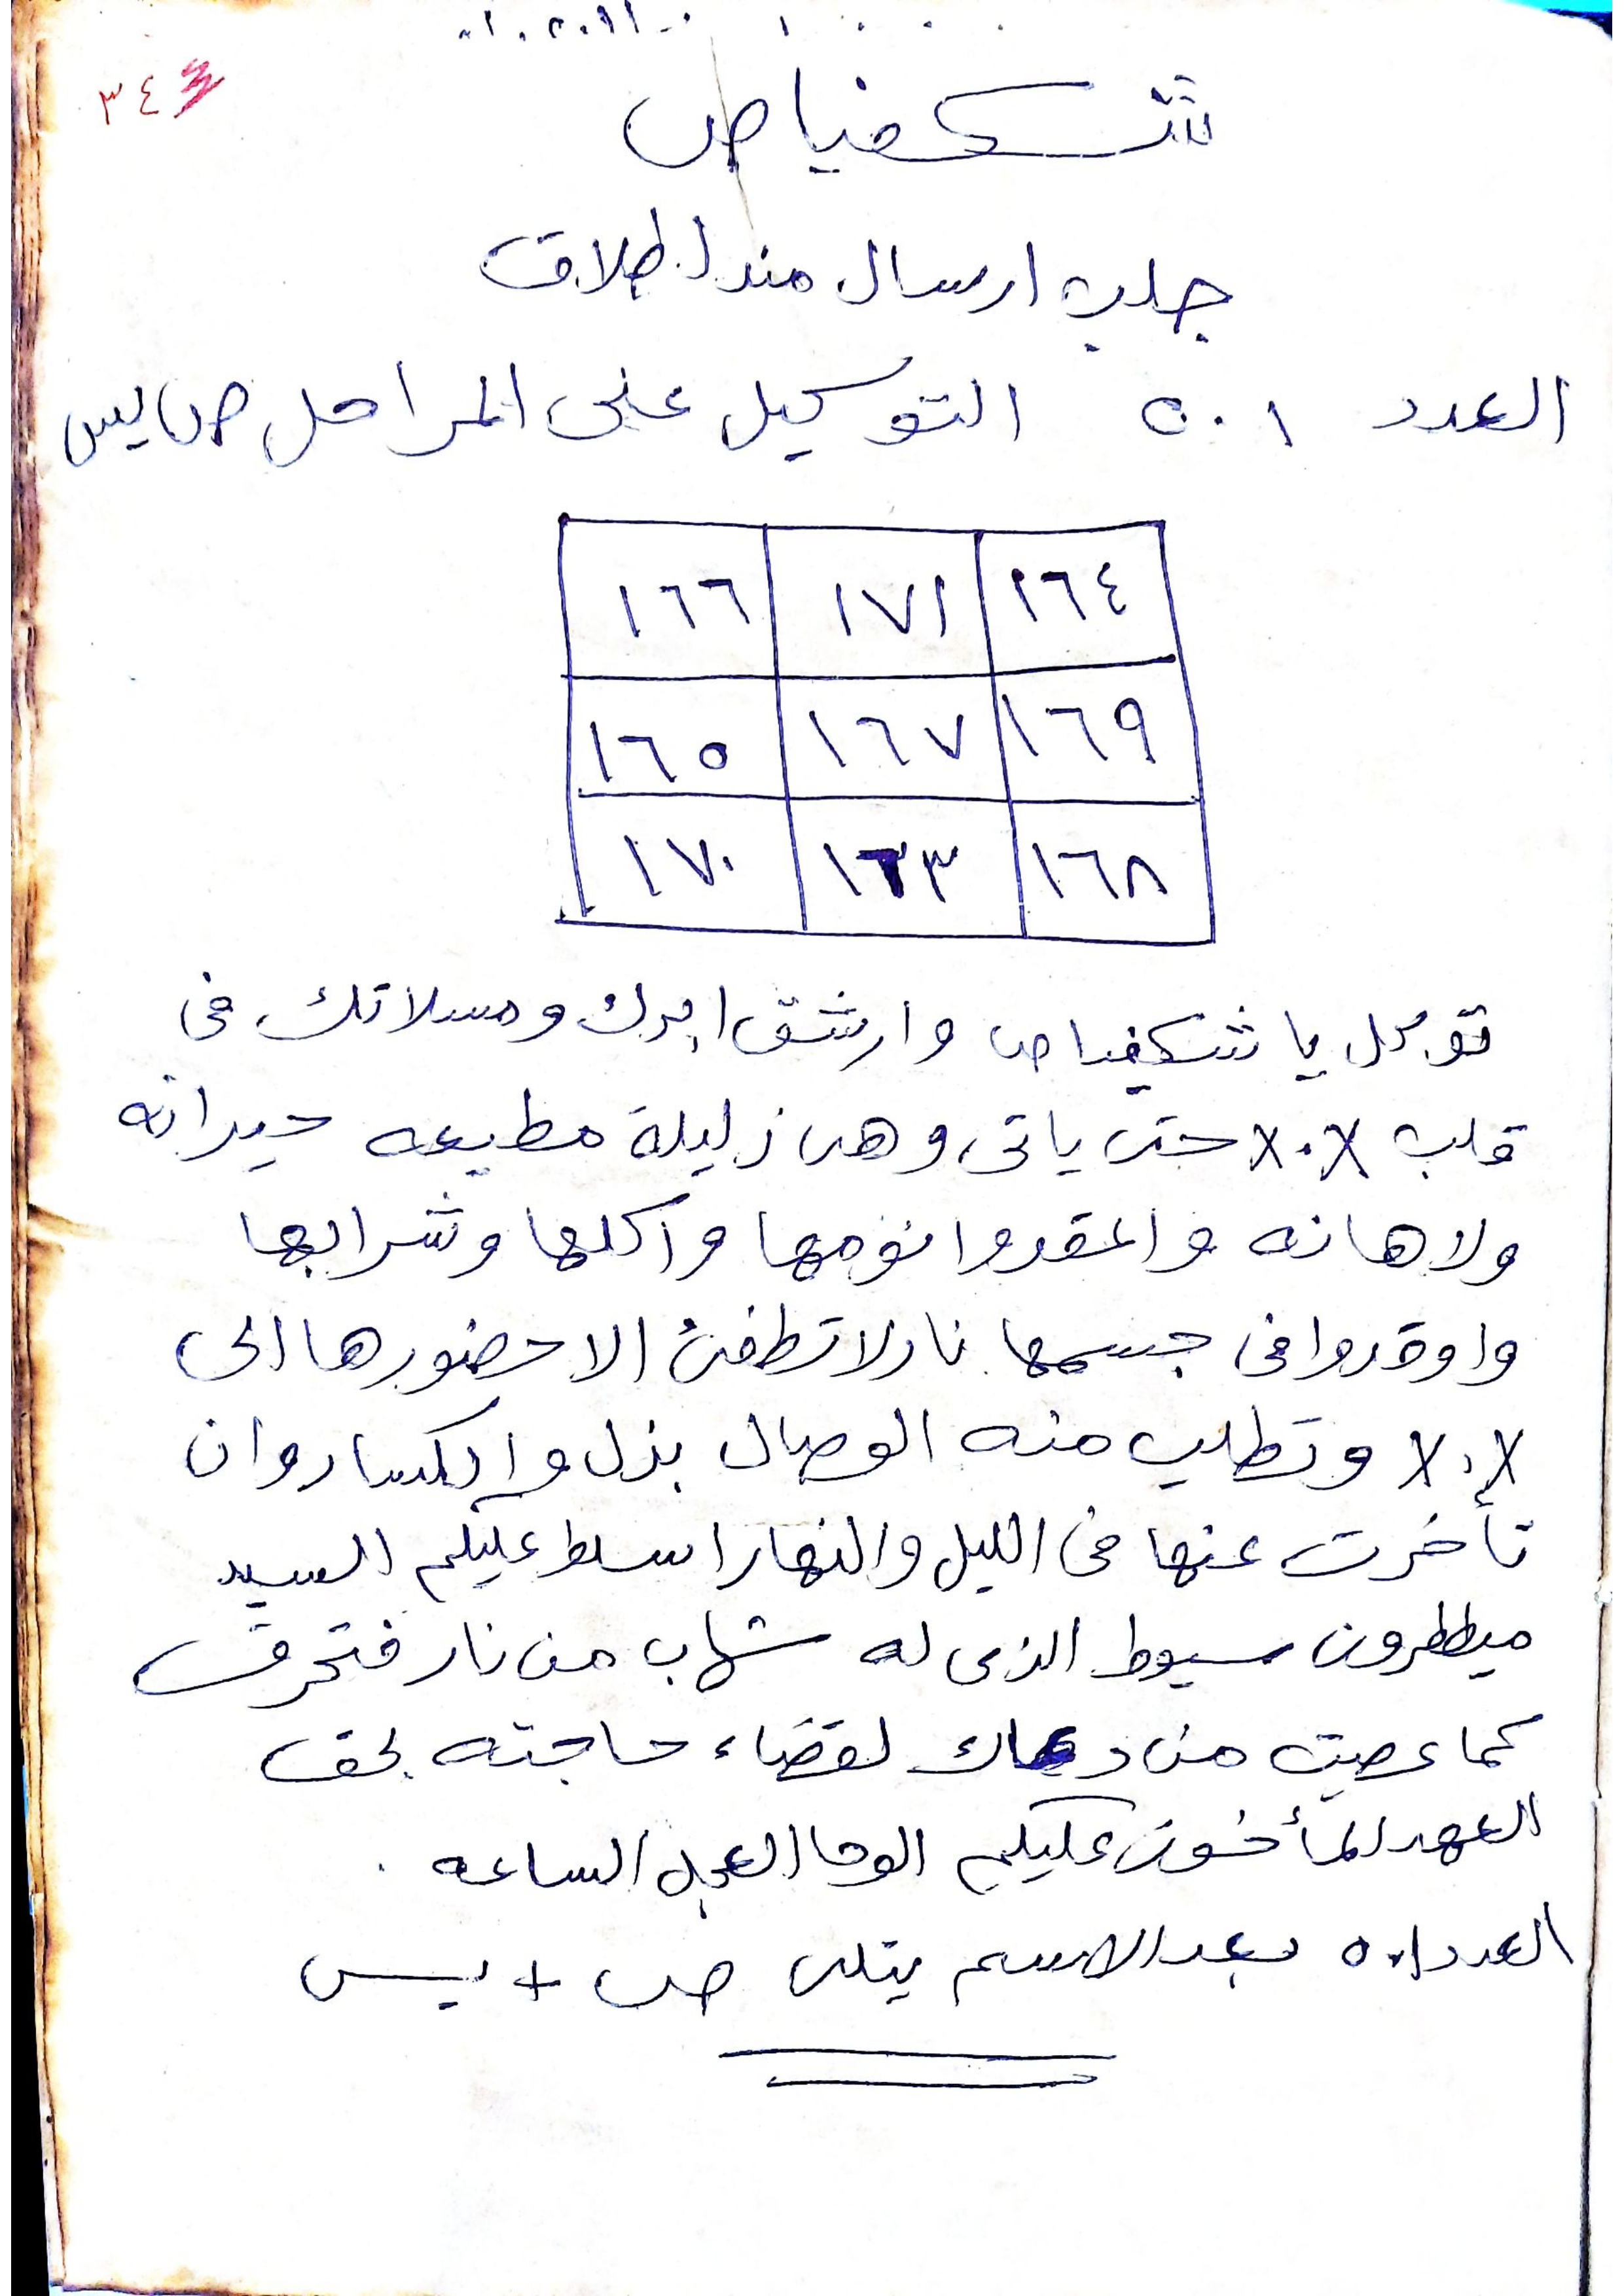 ٣٤٣
شكفياص
جلب ارسال مندل طلاق
العدد ٥٠١ التوكيل على المراحل ص يس
١٦٦ ١٧١ ١٦٤
١٦٥ ١٦٧ ١٦٩
١٧٠ ١٦٣ ١٦٨
توكل يا شكفياص وارشق ابرك ومسلاتك فى
قلب X.X حتى ياتى وهى زليلة مطيعه حيرانه
ولاهانه واعقدوا نومها واكلها وشرابها
واوقدوا فى جسمها نار لا تطفئ الا حضورها الى
X.X وتطلب منه الوصال بذل وانكسار وان
تأخرت عنها فى الليل والنهار اسلط عليكم السيد
ميططرون سيوط الذى له شهاب من نار فتحرق
كما عصيت من دعاك لقضاء حاجته بحق
العهد المأخوذ عليكم الوحا العجل الساعه .
العدد ٥٠١ بعد الاسم يتلى ص + يس